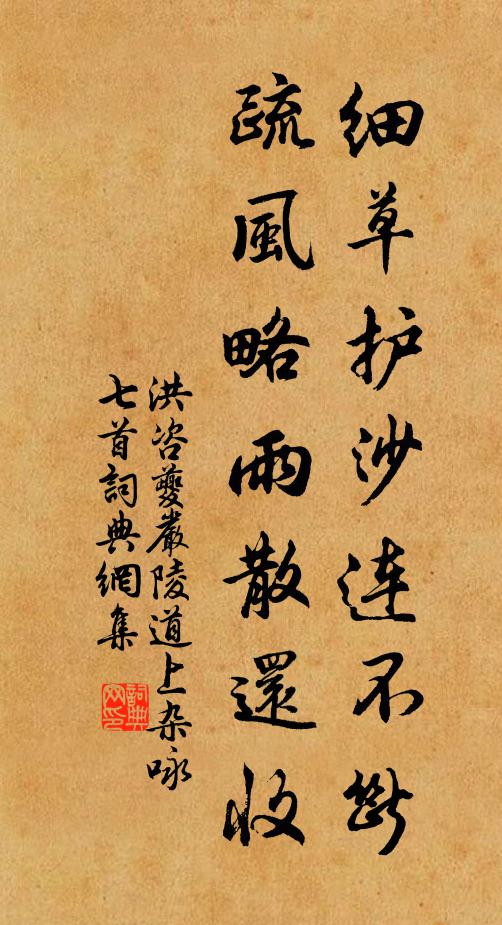 细草护沙连不断
疏風略雨散還收
洪咨夔嚴陵道上杂咏
七首詞典網集
詞典网印